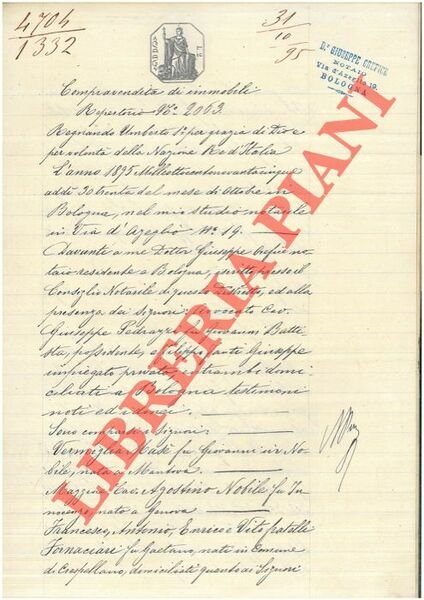 4704
1332
31
10
95
Dr. GIUSEPPE
NOTAIO
Via d'Azeglio, 19.
BOLOGNA
Compravendita di immobili
Repertorio N° 2063.
Regnando Umberto 1° per grazia di Dio e
per volontà della Nazione Re d'Italia
L'anno 1895 Millottocentonovantacinque
addì 30 trenta del mese di Ottobre in
Bologna, nel mio studio notarile
in Via d'Azeglio N° 19.
Davanti a me Dottor Giuseppe no-
taio residente a Bologna, iscritto presso il
Consiglio Notarile di questo Distretto, ed alla
presenza dei Signori: Avvocato Cav.
Giuseppe Pedrazzi fu Giovanni Batti-
sta, possidente, e Giuseppe
impiegato privato, entrambi domi-
ciliati a Bologna testimoni
noti ed idonei.
Sono comparsi i Signori
fu Giovanni in No-
bile, nata a Mantova
Cav. Agostino Nobile fu In-
nocenzo, nato a Genova
Francesco, Antonio, Enrico e Vito fratelli
Fornaciari fu Gaetano, nati in Comune
di Crespellano, domiciliati quanto ai Signori
LIBRERIA PIANI